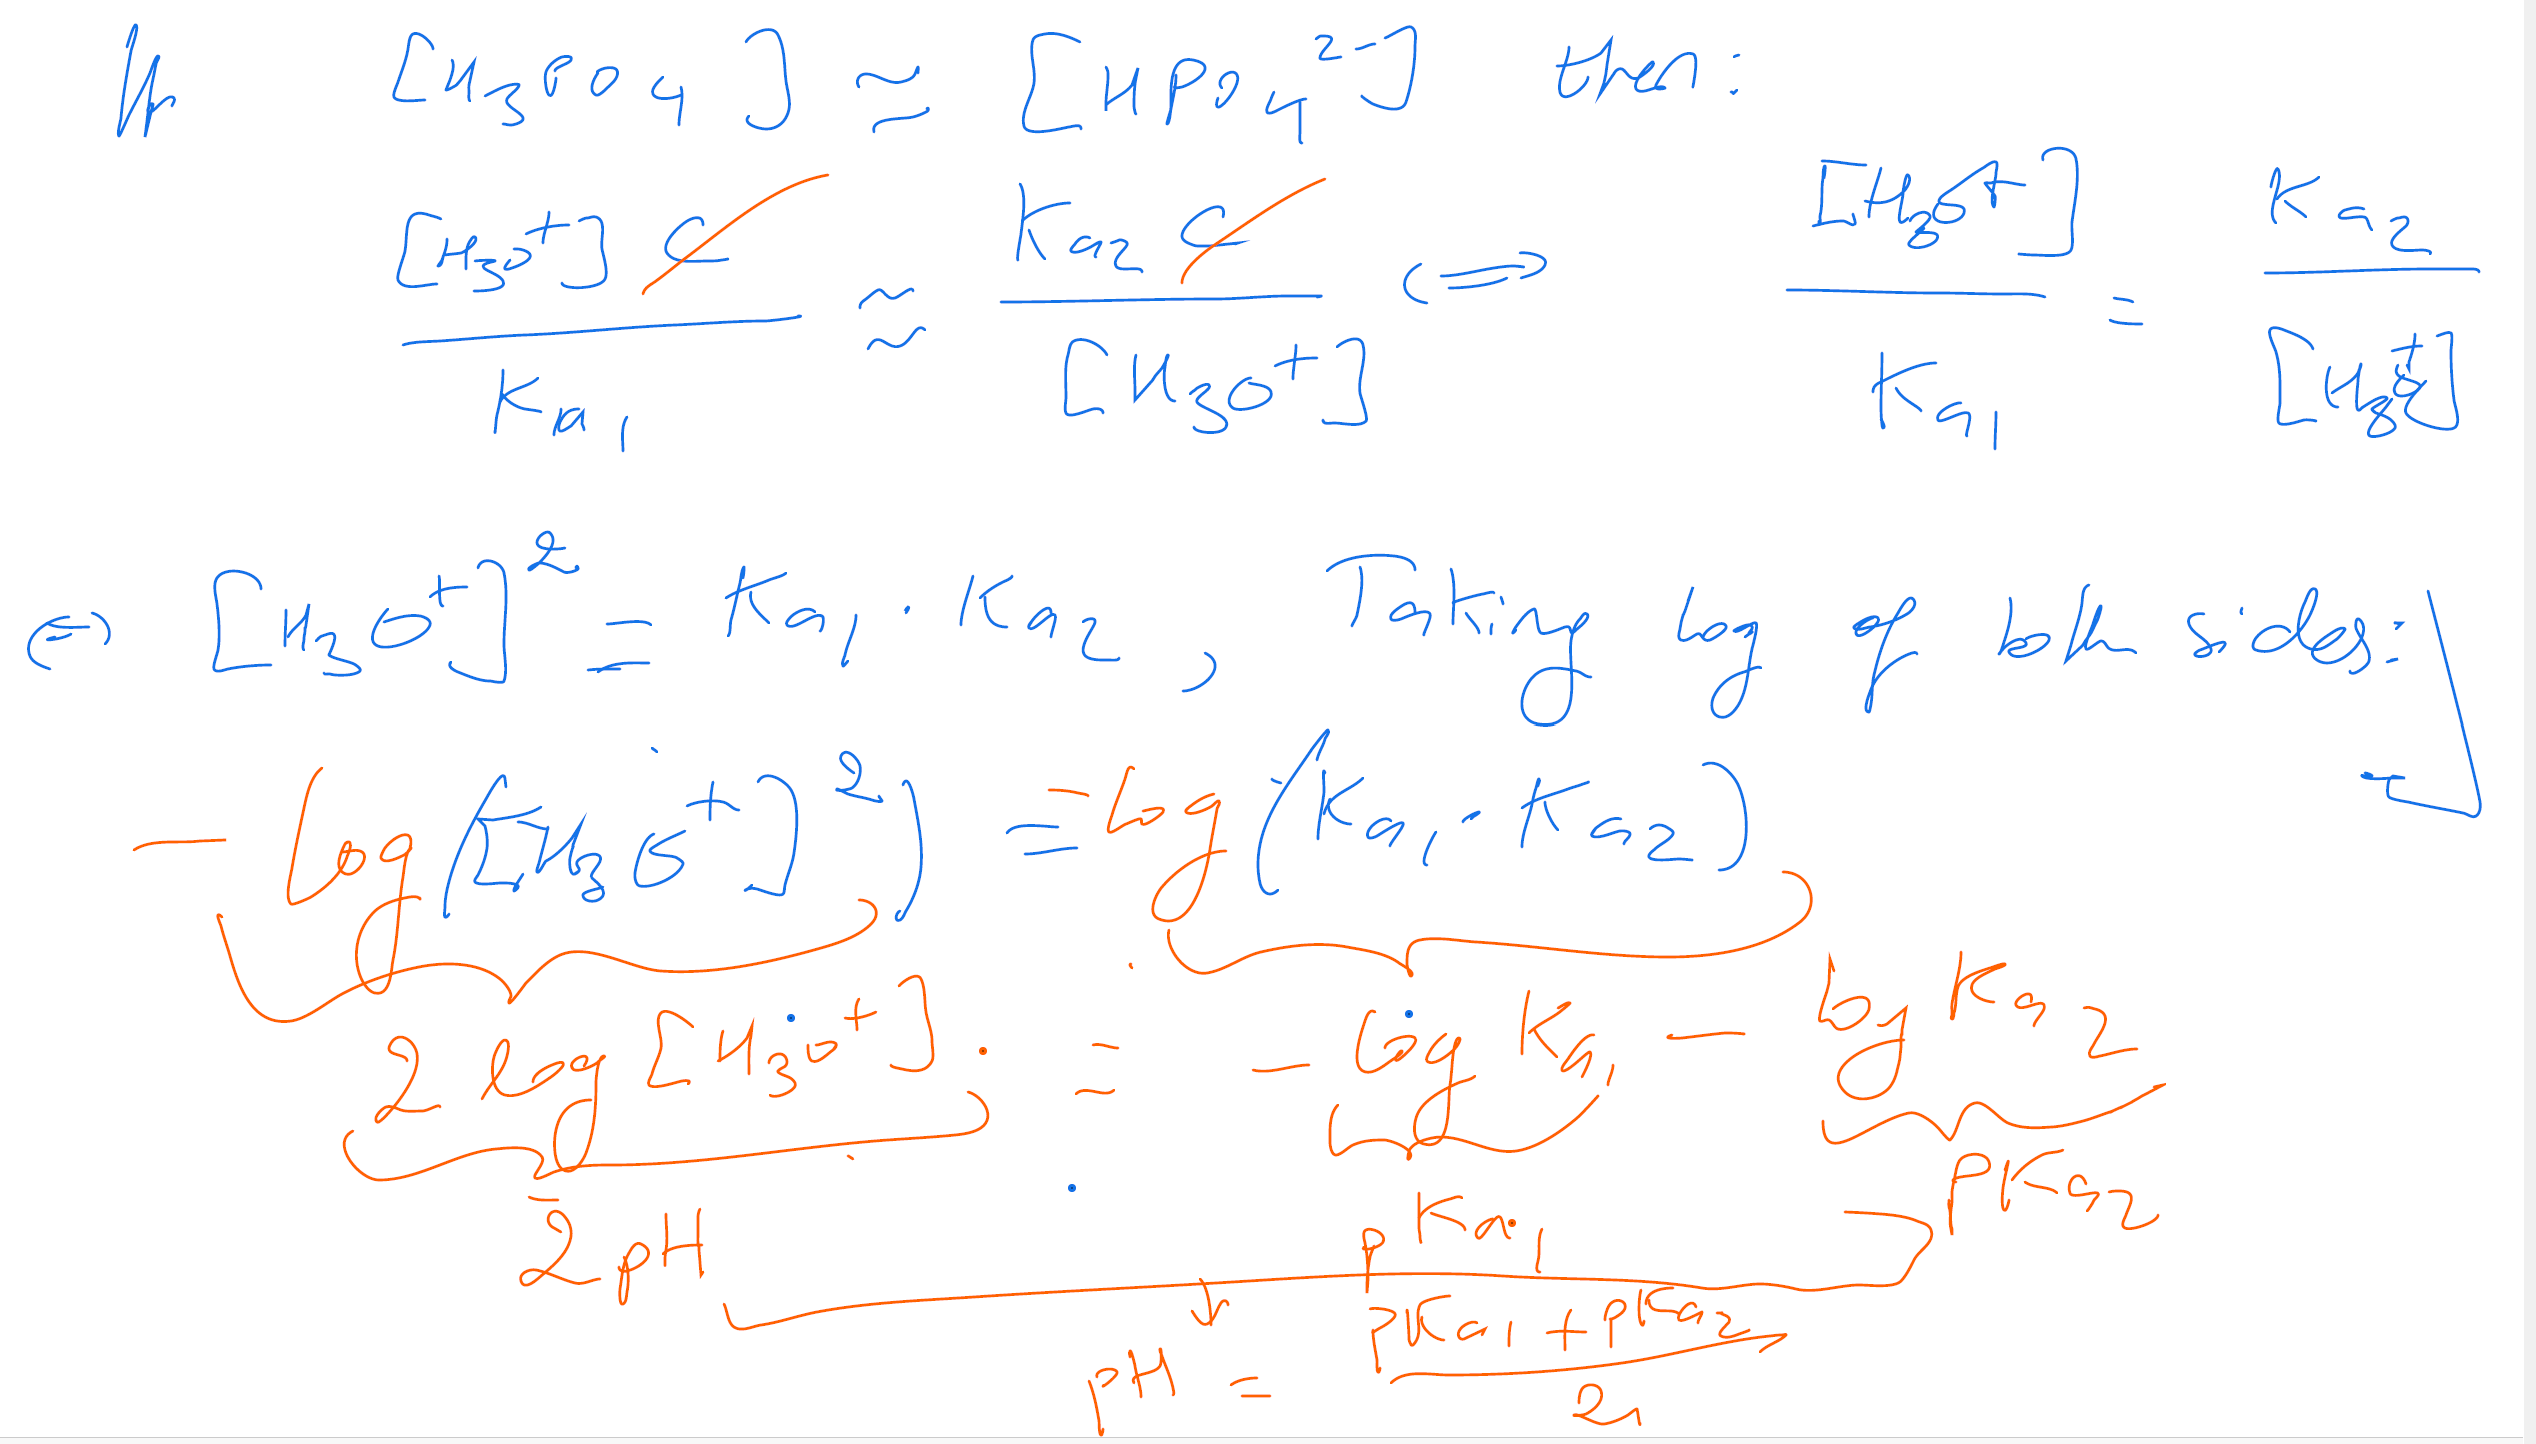 If [H₃PO₄] ≈ [HPO₄²⁻] then:
[H₃O⁺] C / Ka₁ ≈ Ka₂ C / [H₃O⁺] ⇔ [H₃O⁺] / Ka₁ = Ka₂ / [H₃O⁺]
⇔ [H₃O⁺]² = Ka₁ · Ka₂ , Taking log of both sides:
- log([H₃O⁺]²) = - log(Ka₁ · Ka₂)
2 log [H₃O⁺] = - log Ka₁ - log Ka₂
2 pH pKa₁ pKa₂
pH = pKa₁ + pKa₂ / 2